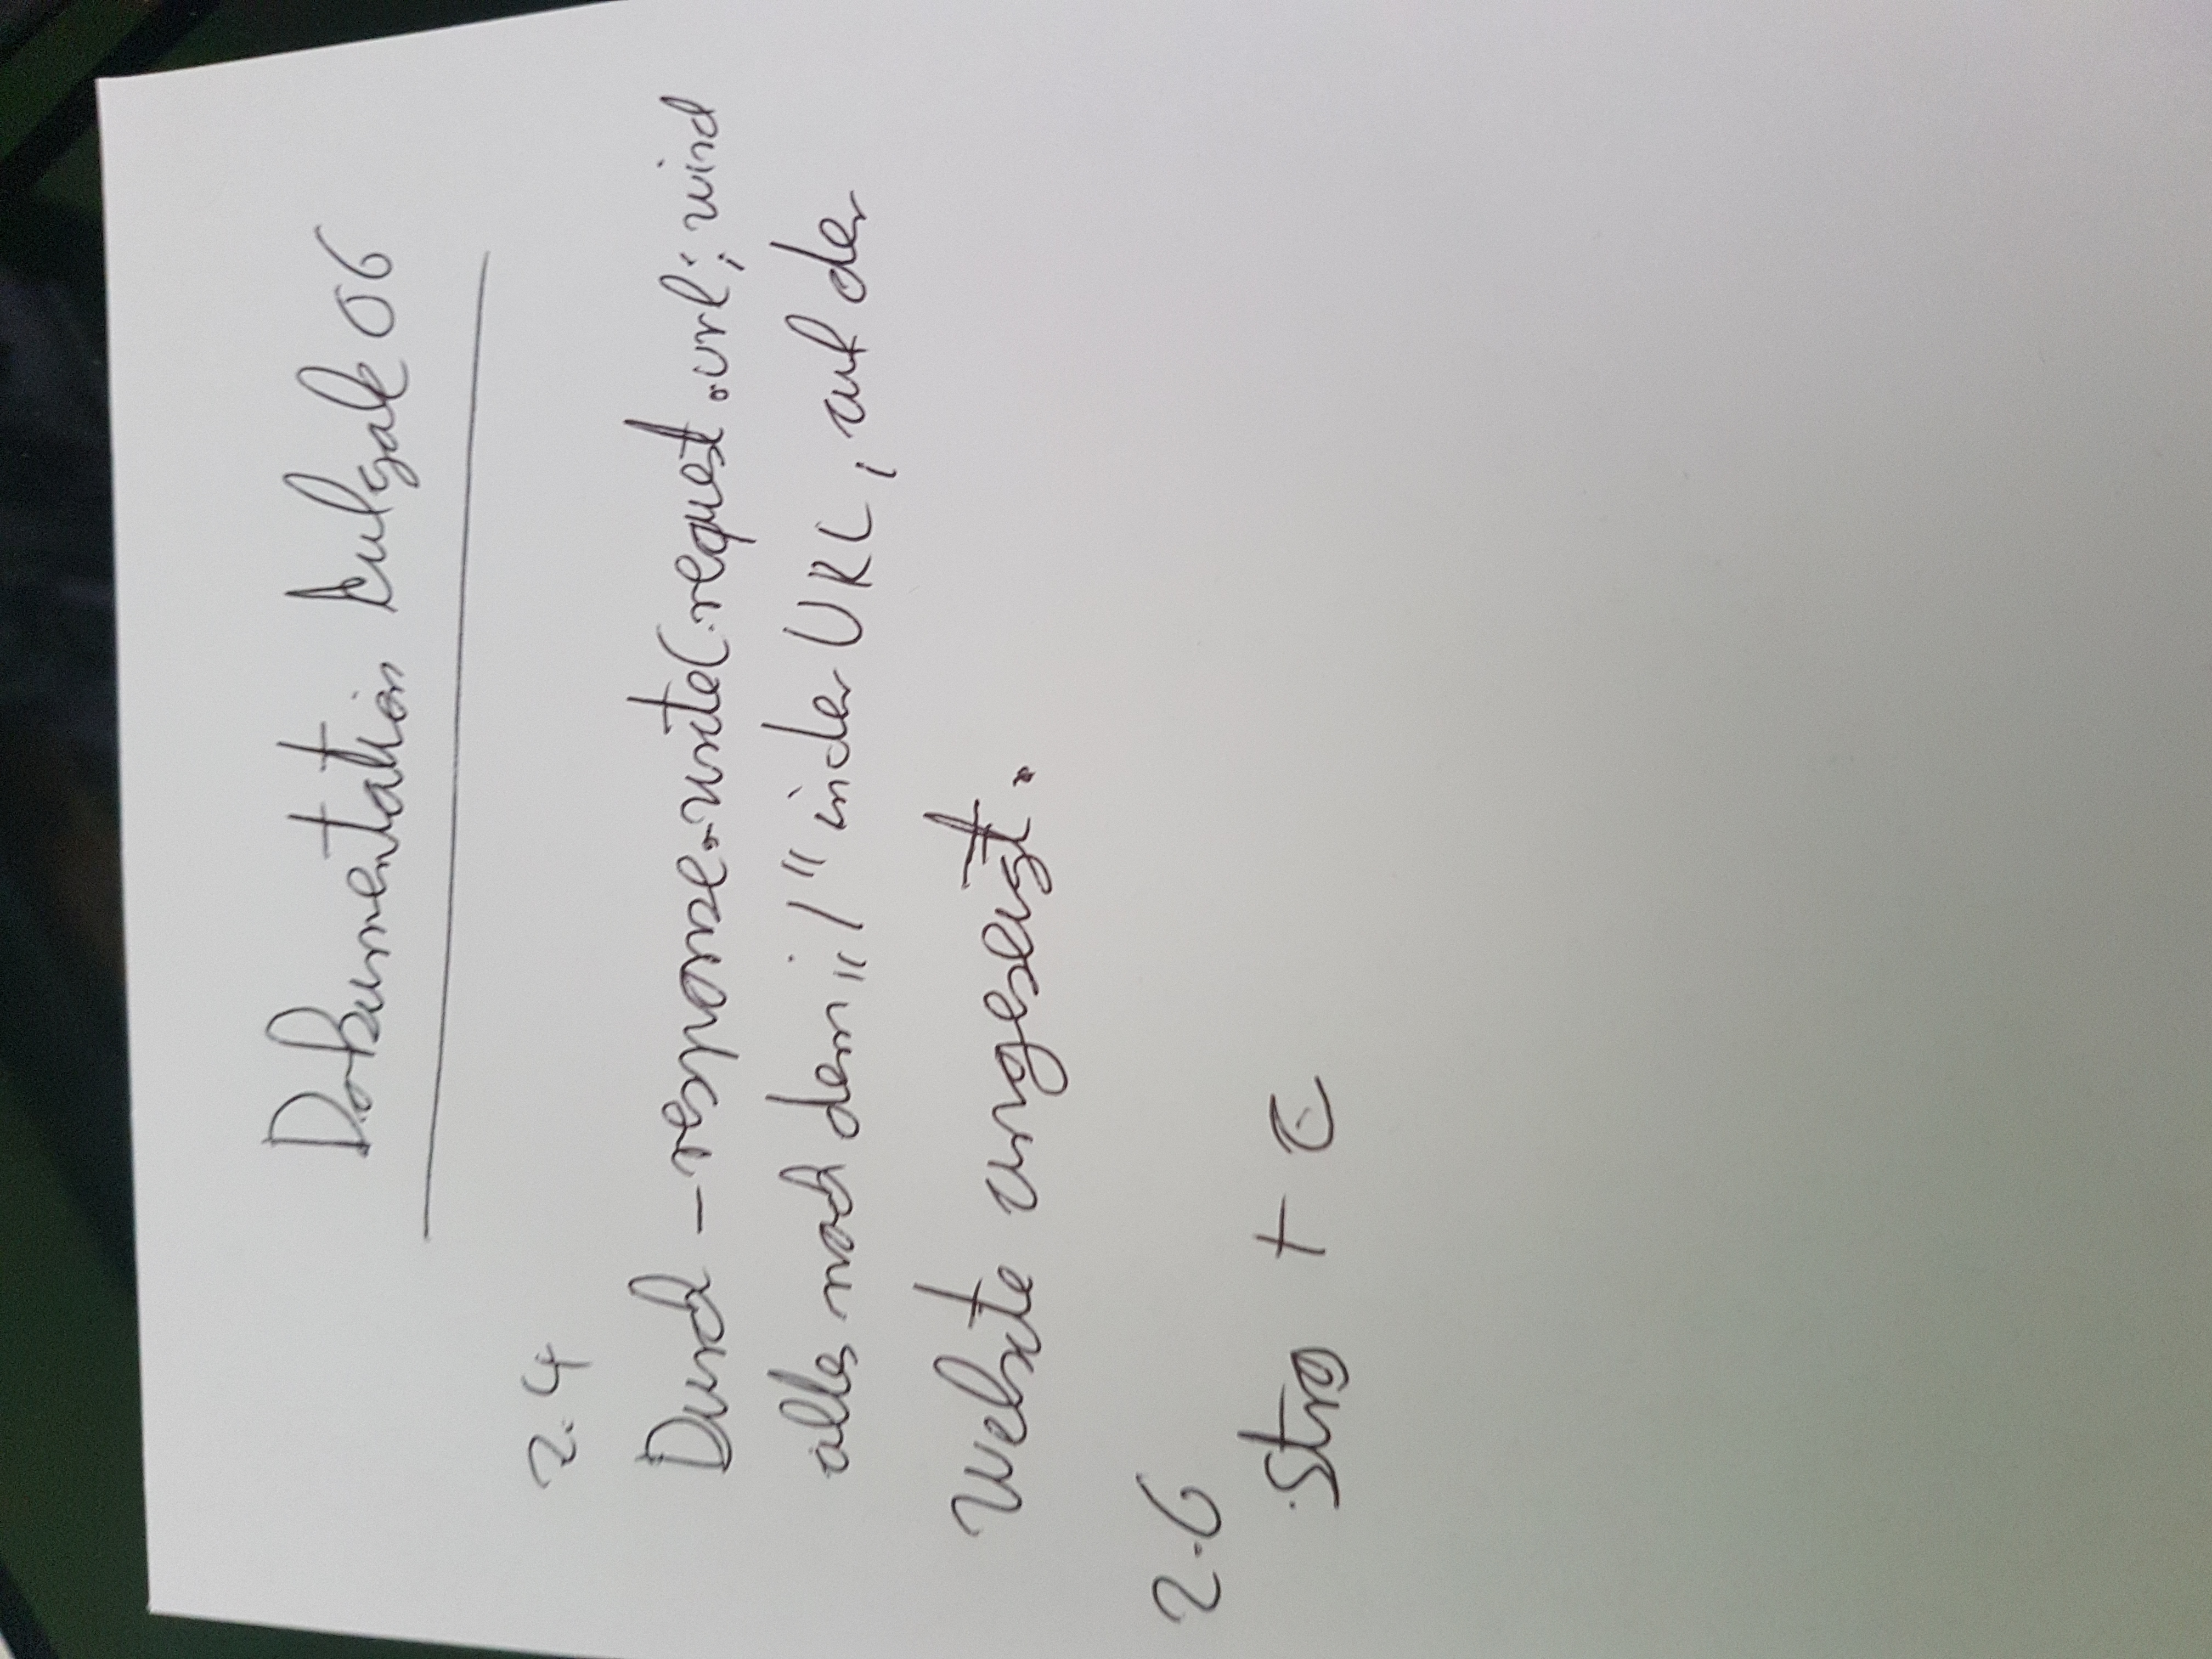 Dokumentation Aufgabe 06
2.4
Durch _response.write(_request.url; wird
alles nach dem „/“ in der URL, auf der
Website angezeigt.
2.6
Strg + C